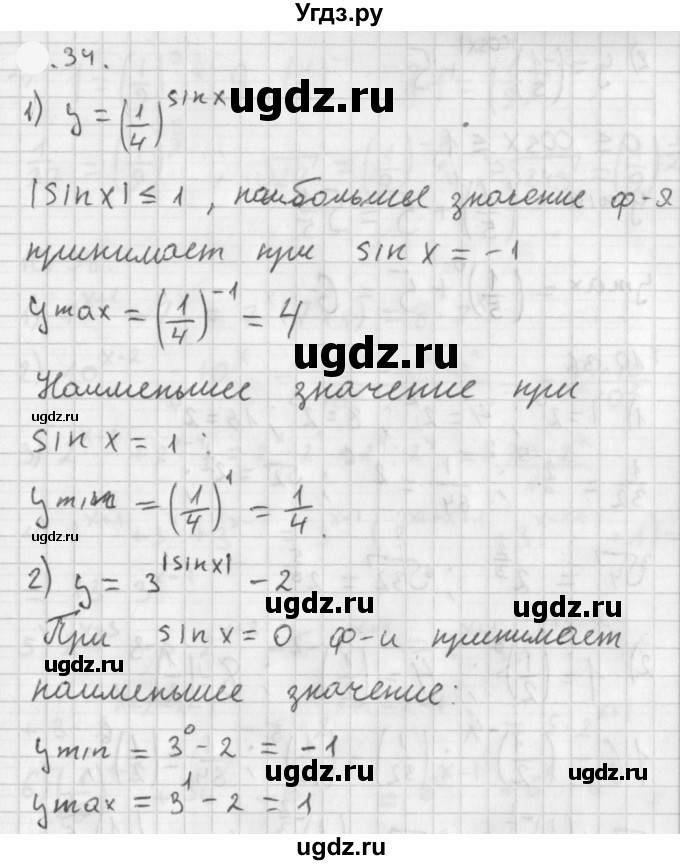 Угдз.ру
.34.
1) y = (1/4)^sin x
ugdz.ru
|sin x| ≤ 1, наибольшее значение ф-я
принимает при sin x = -1
y max = (1/4)^-1 = 4
ugdz.ru
Наименьшее значение при
ugdz.ru
sin x = 1:
y min = (1/4)^1 = 1/4.
ugdz.ru
2) y = 3^|sin x| - 2
ugdz.ru
При sin x = 0 ф-и принимает
ugdz.ru
ugdz.ru
наименьшее значение:
y min = 3^0 - 2 = -1
ugdz.ru
ugdz.ru
y max = 3^1 - 2 = 1
ugdz.ru